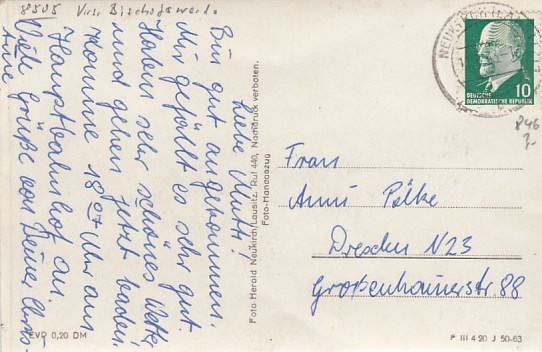 8505 Bischofswerda
Liebe Mutti!
Bin gut angekommen.
Mir gefällt es sehr gut.
Haben sehr schönes Wetter
und gehen jetzt baden.
Komme 18⁰⁷ Uhr am
Hauptbahnhof an.
Viele Grüße von Deiner
EVP 0,20 DM
Foto-Herold Neukirch/Lausitz, Ruf 440, Nachdruck verboten.
Foto-Handabzug
NEUKIRCH (LAUSITZ)
10
DEUTSCHE
DEMOKRATISCHE REPUBLIK
846
Frau
Anni Pölke
Dresden N23
Großenhainerstr 88
P III 4 20 J 50-63